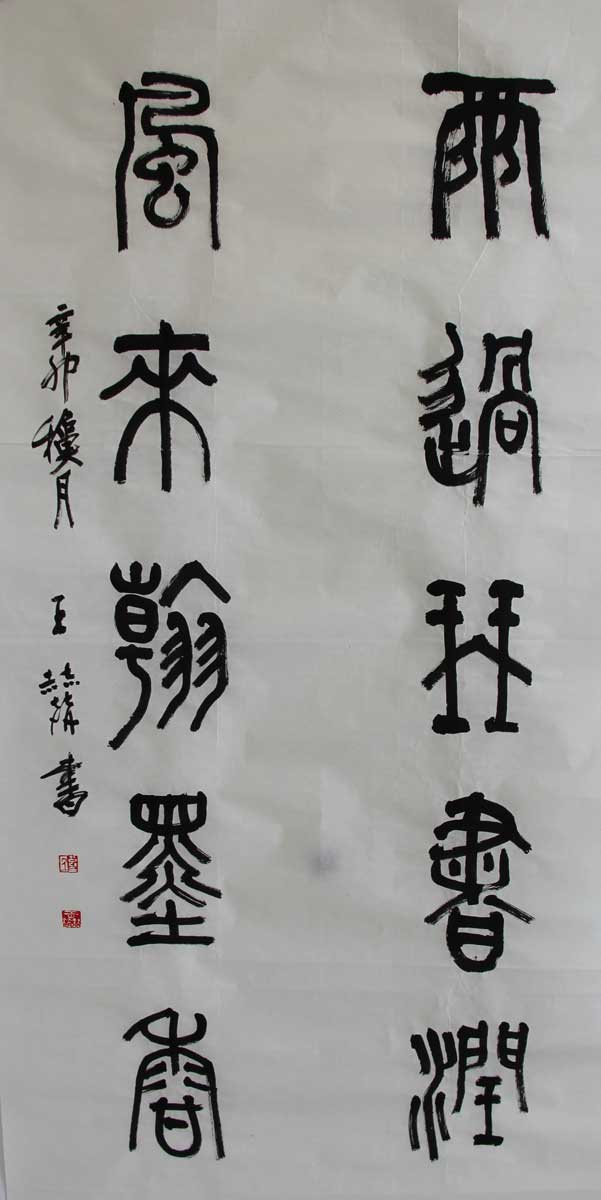 雨過琴書潤
風來翰墨香
辛卯穫月 王 書